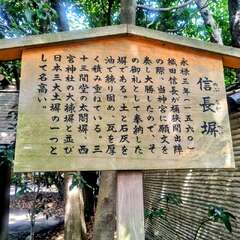 信長塀
永禄三年(一五六〇)
織田信長が桶狭間出陣
の際、当神宮に願文を
奏し大勝したので、そ
の御礼として奉納した
塀である。土と石灰を
油で練り固め瓦を厚
く積み重ねている。三
十三間堂の太閤塀、西
宮神社の大練塀と並び
日本三大土塀の一つと
して名高い。